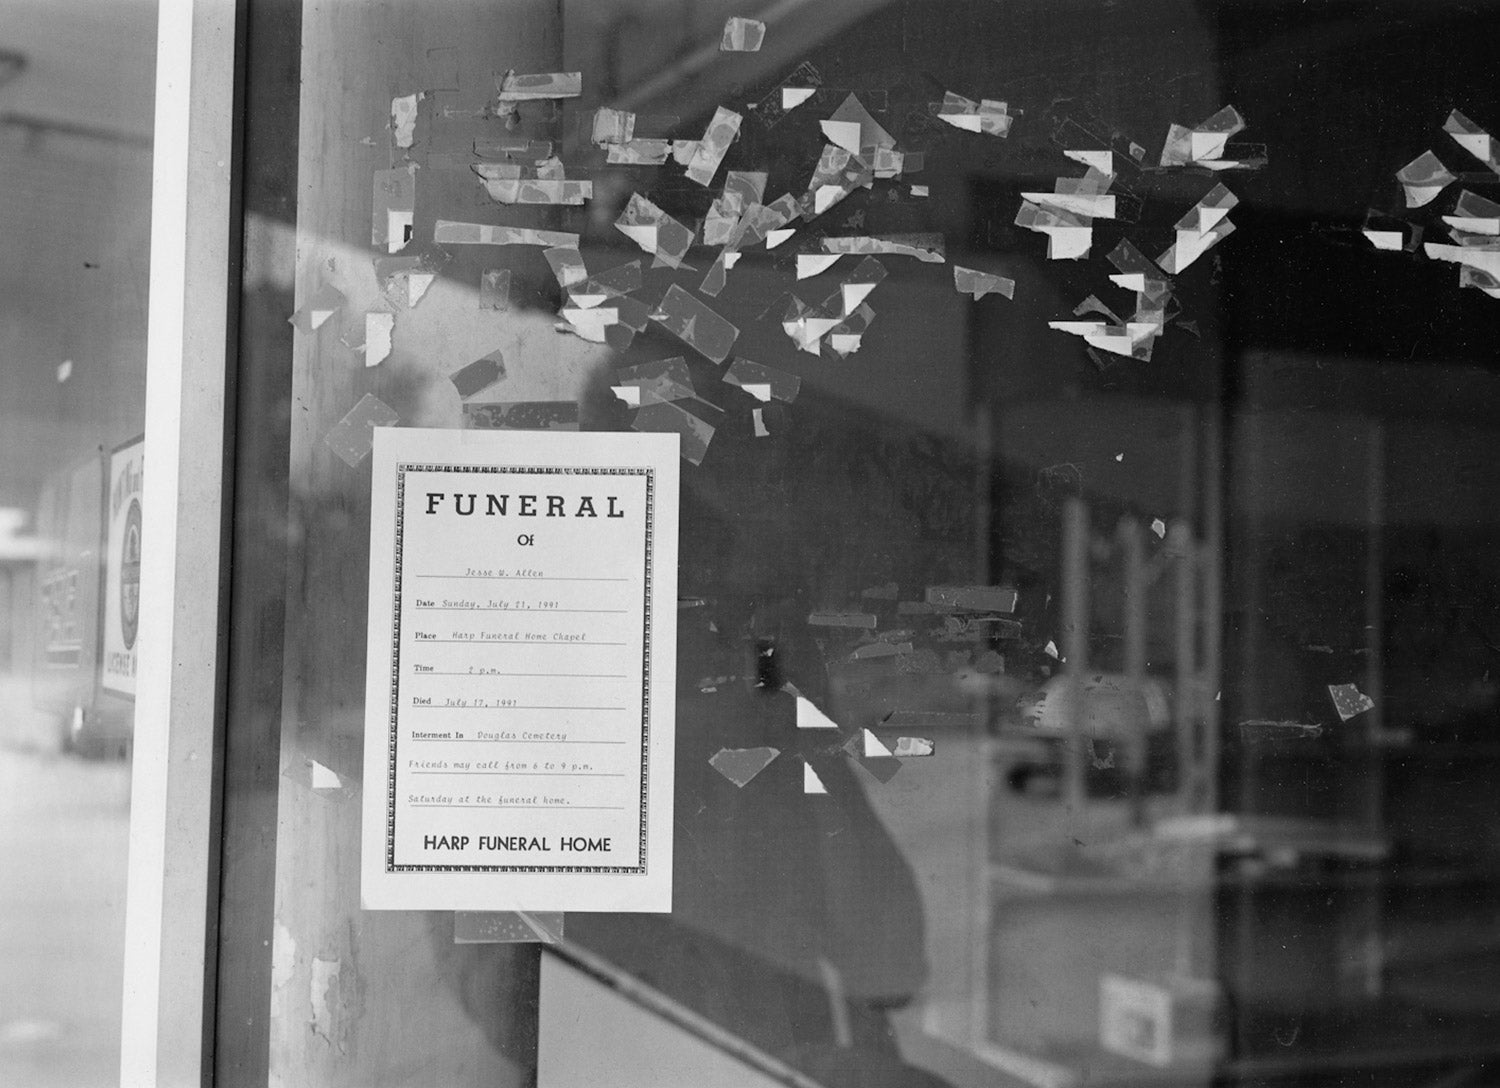 FUNERAL
Of
Jesse W. Allen
Date Sunday, July 21, 1991
Place Harp Funeral Home Chapel
Time 2 p.m.
Died July 17, 1991
Interment In Douglas Cemetery
Friends may call from 6 to 9 p.m.
Saturday at the funeral home.
HARP FUNERAL HOME
LICENSE